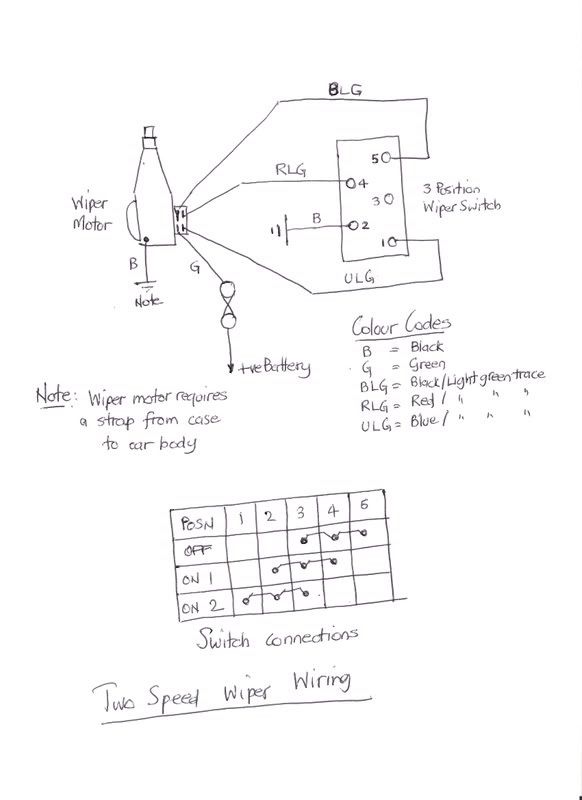 BLG
RLG
5
4
3
2
1
3 Position
Wiper Switch
Wiper
Motor
B
B
G
Note
ULG
+ve Battery
Colour Codes
B = Black
G = Green
BLG = Black/Light green trace
RLG = Red / " " "
ULG = Blue / " " "
Note: Wiper motor requires
a strap from case
to car body
POSN 1 2 3 4 5
OFF
ON 1
ON 2
Switch connections
Two Speed Wiper Wiring